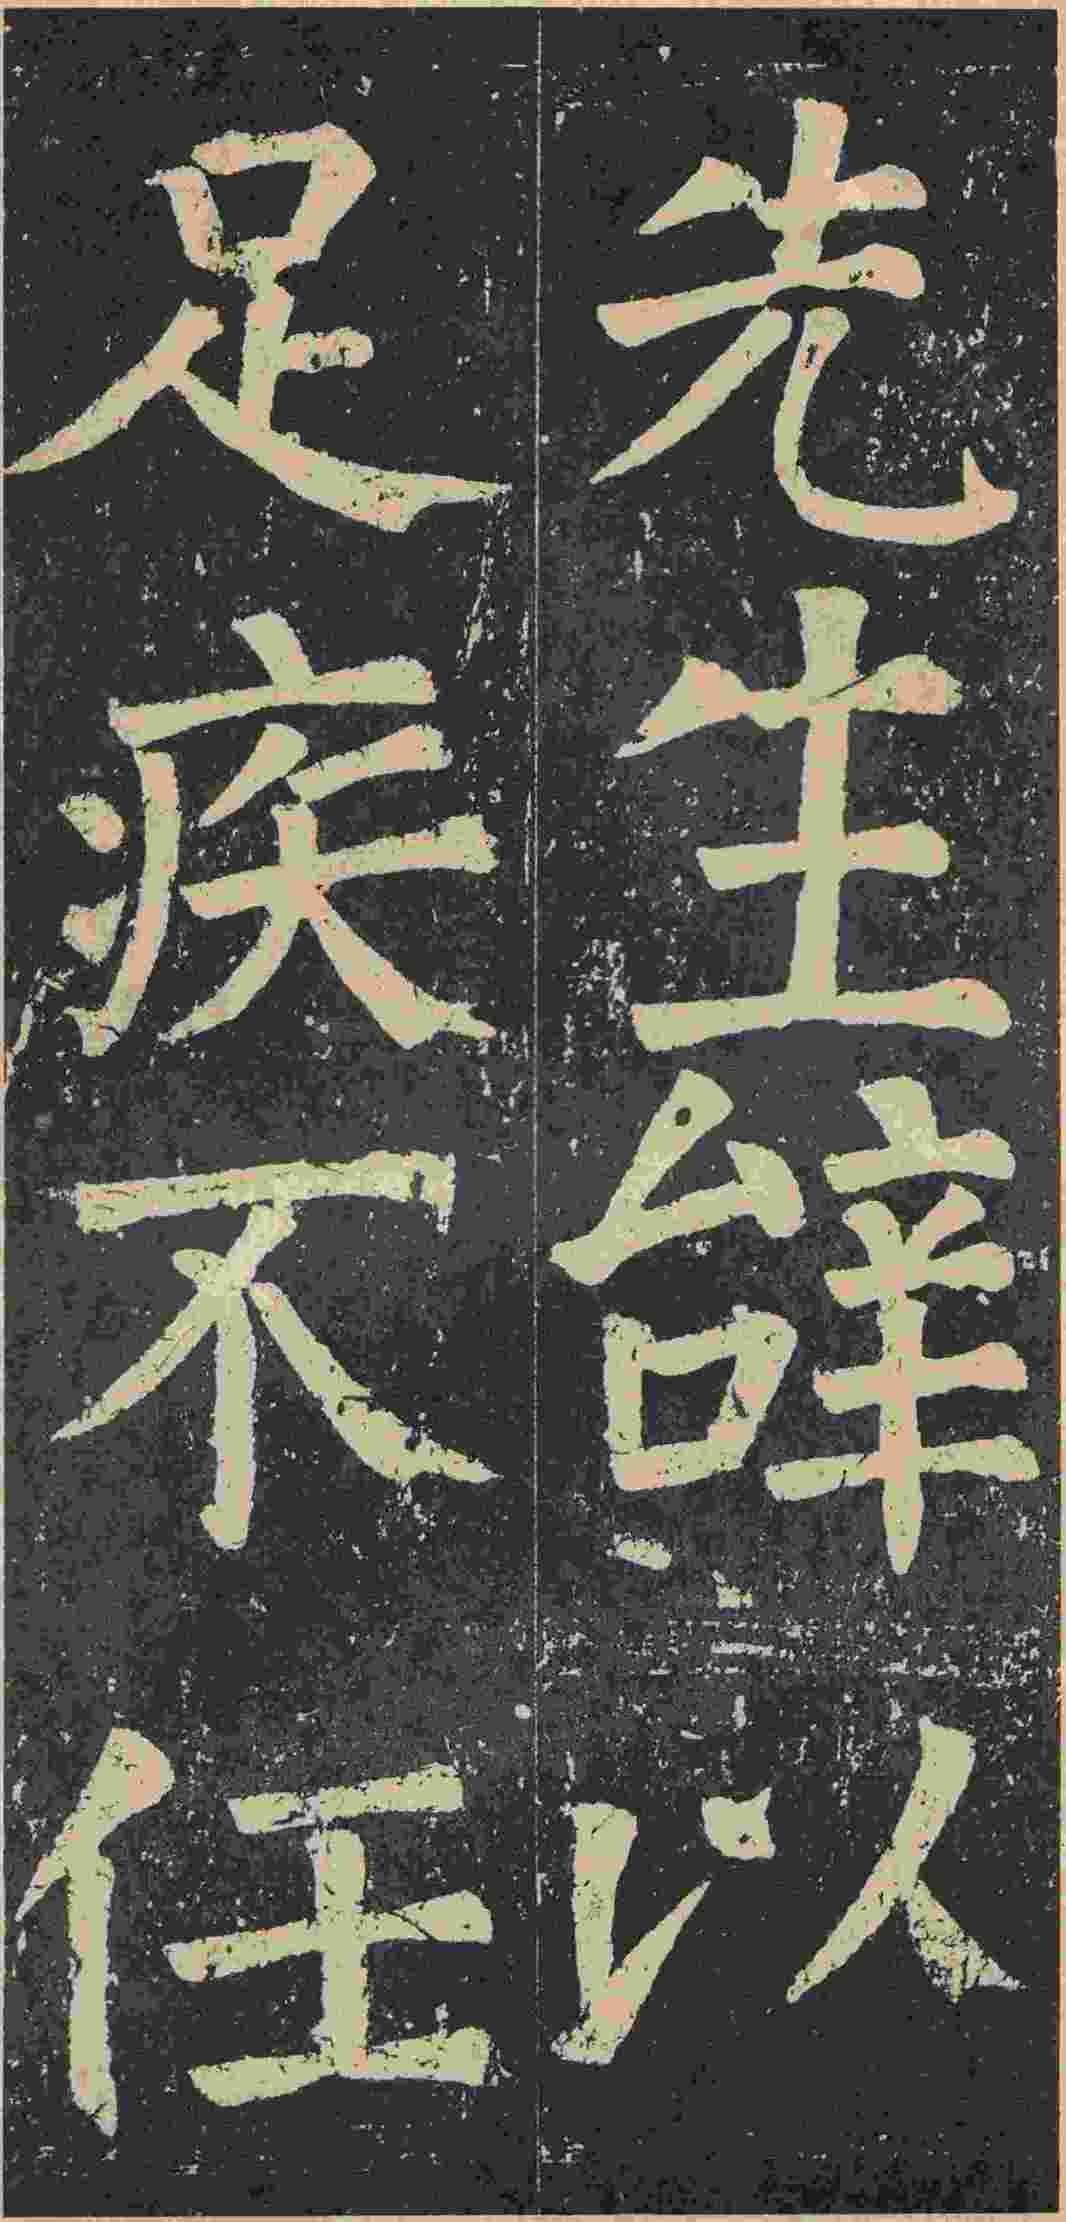 先生辝以
足疾不任